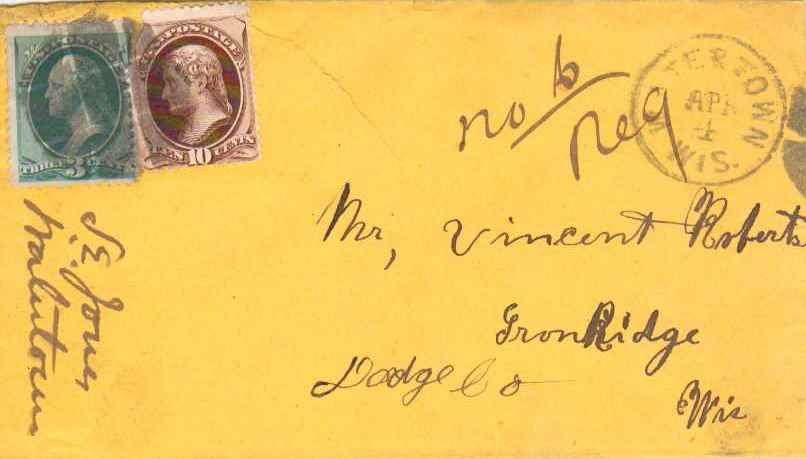 U.S. POSTAGE
THREE 3 CENTS
U.S. POSTAGE
TEN 10 CENTS
no 6
Reg
WATERTOWN
APR
4
WIS.
Mr, Vincent Roberts
Iron Ridge
Dodge Co
Wis
Jones